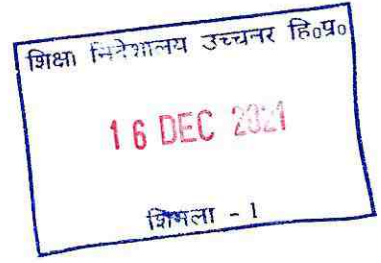 शिक्षा निदेशालय उच्चतर हि०प्र०
16 DEC 2021
शिमला - 1